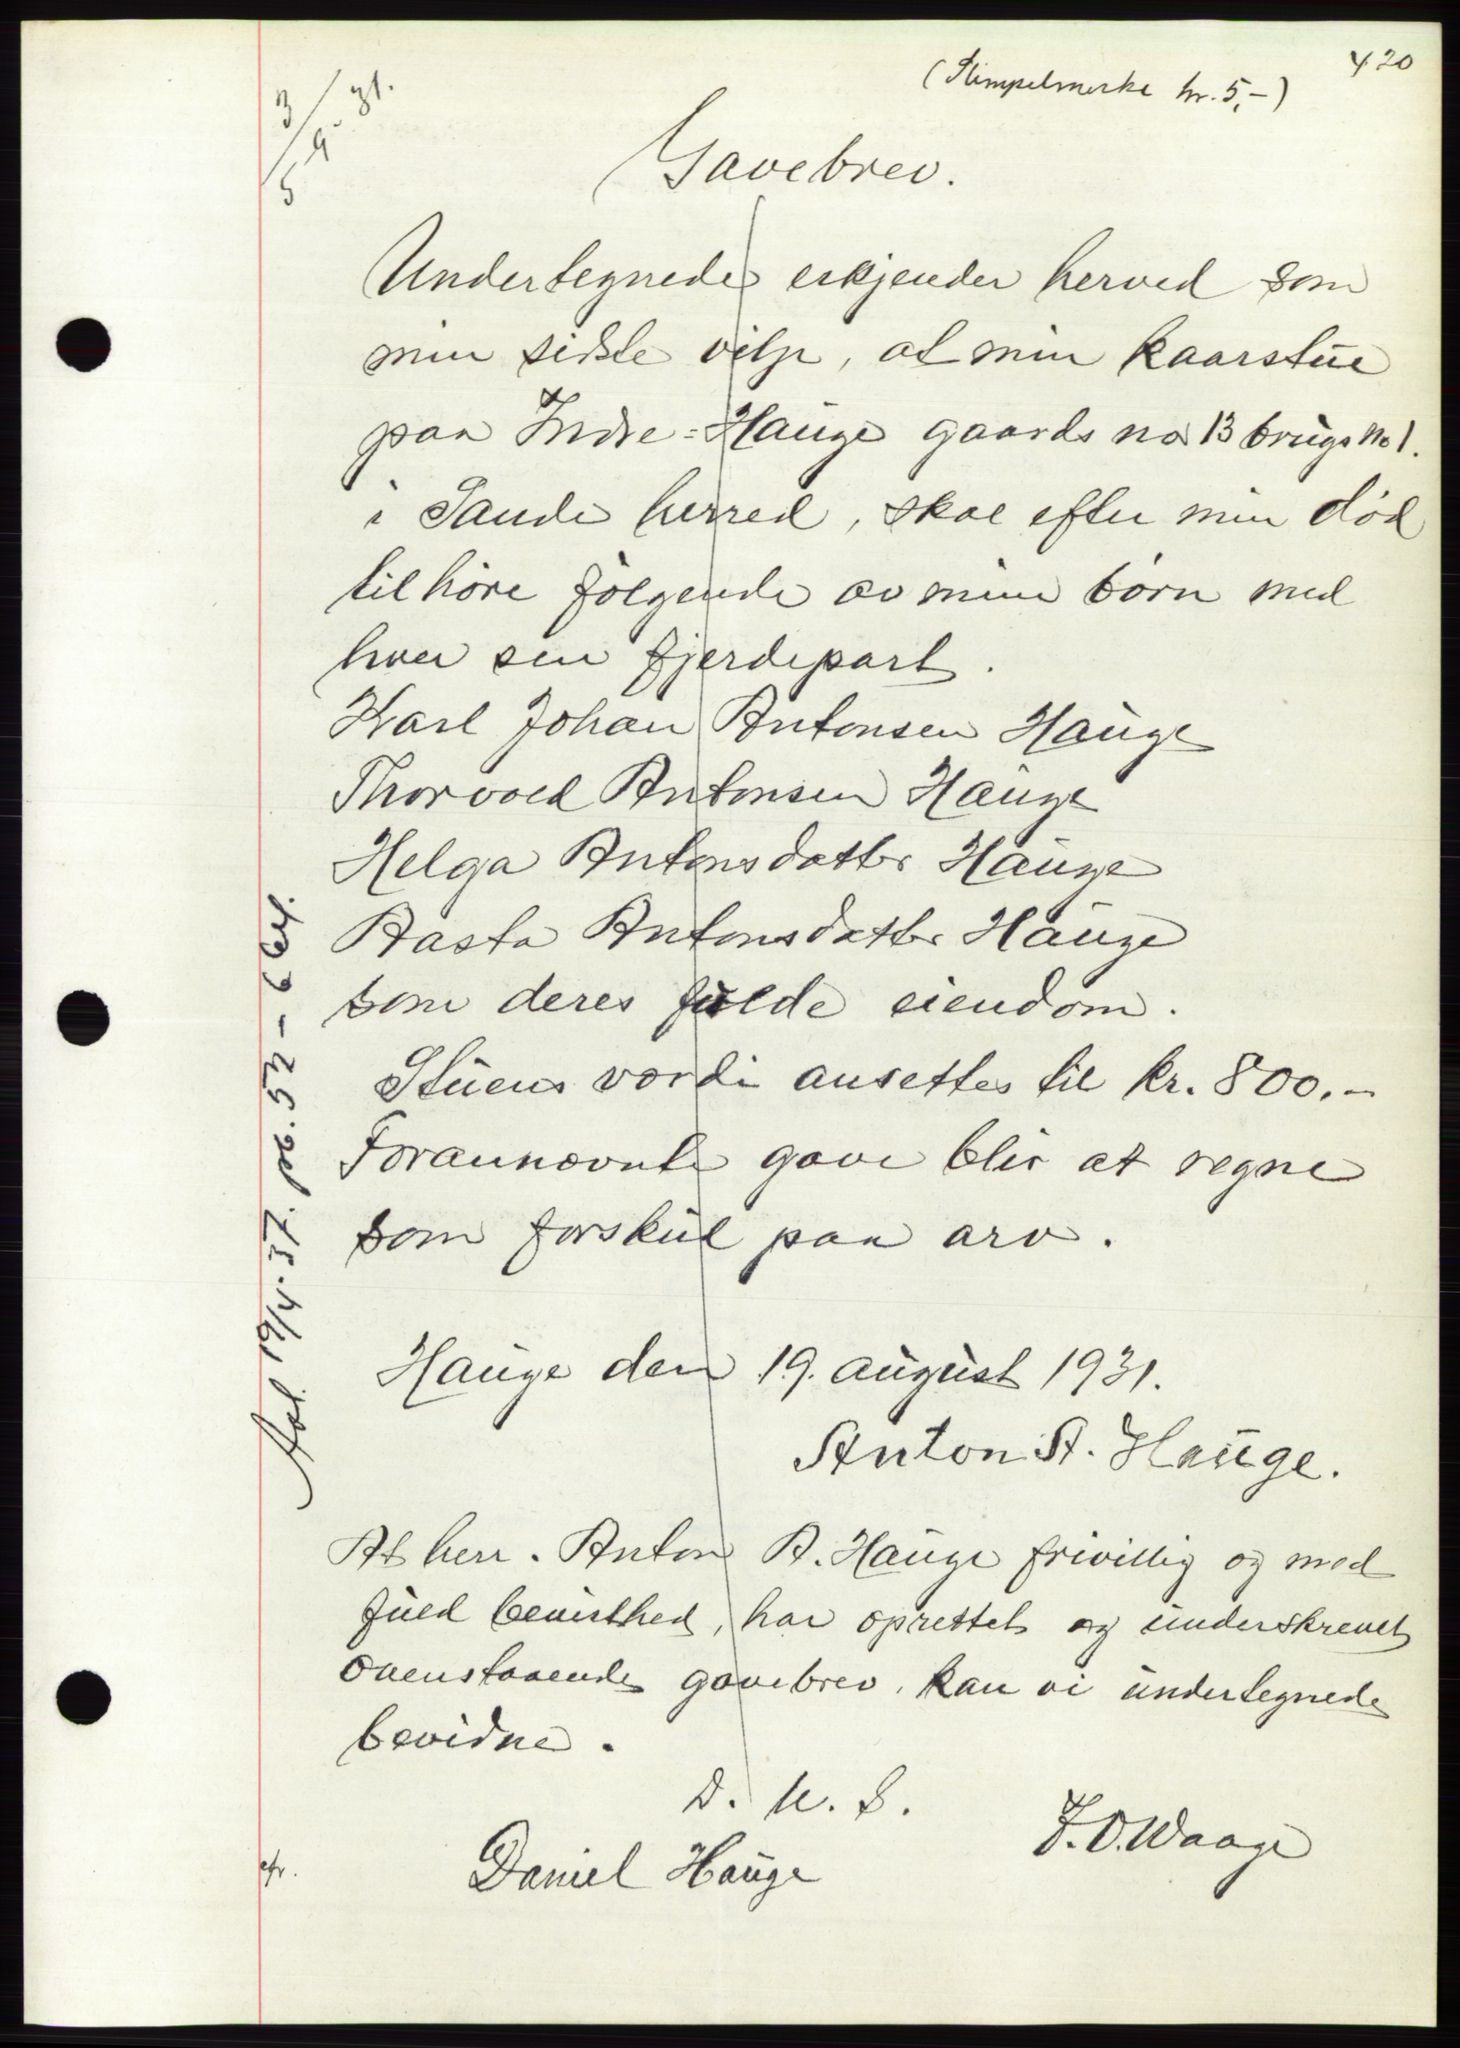 420
(Stempelmerke kr. 5,-)
3/9-31.
5
Gavebrev.
Undertegnede erkjender herved som
min sidste vilje, at min kaarstue
paa Indre=Hauge gaards no 13 brugs no 1.
i Sande herred, skal efter min död
tilhöre fölgende av mine börn med
hver sin fjerdepart.
Karl Johan Antonsen Hauge
Thorvald Antonsen Hauge
Helga Antonsdatter Hauge
Aasta Antonsdatter Hauge
som deres fulde eiendom.
Stuens værdi ansettes til kr. 800.-
Forannævnte gave blir at regne
som forskud paa arv.
Hauge den 19. august 1931.
Anton A. Hauge.
At herr. Anton A. Hauge frivillig og med
fuld bevisthed, har oprettet og underskrevet
ovenstaaende gavebrev, kan vi undertegnede
bevidne.
D. U. S.
Daniel Hauge
F. O. Waage
Avl. 19/4-37.